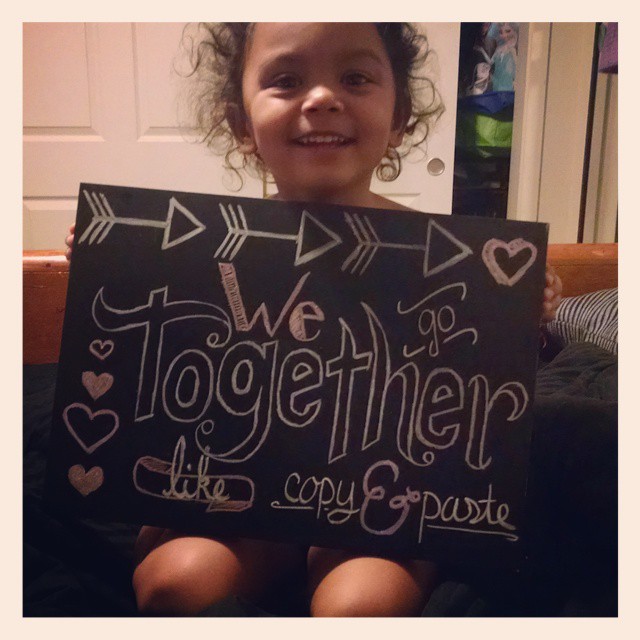 We go
Together
like copy & paste